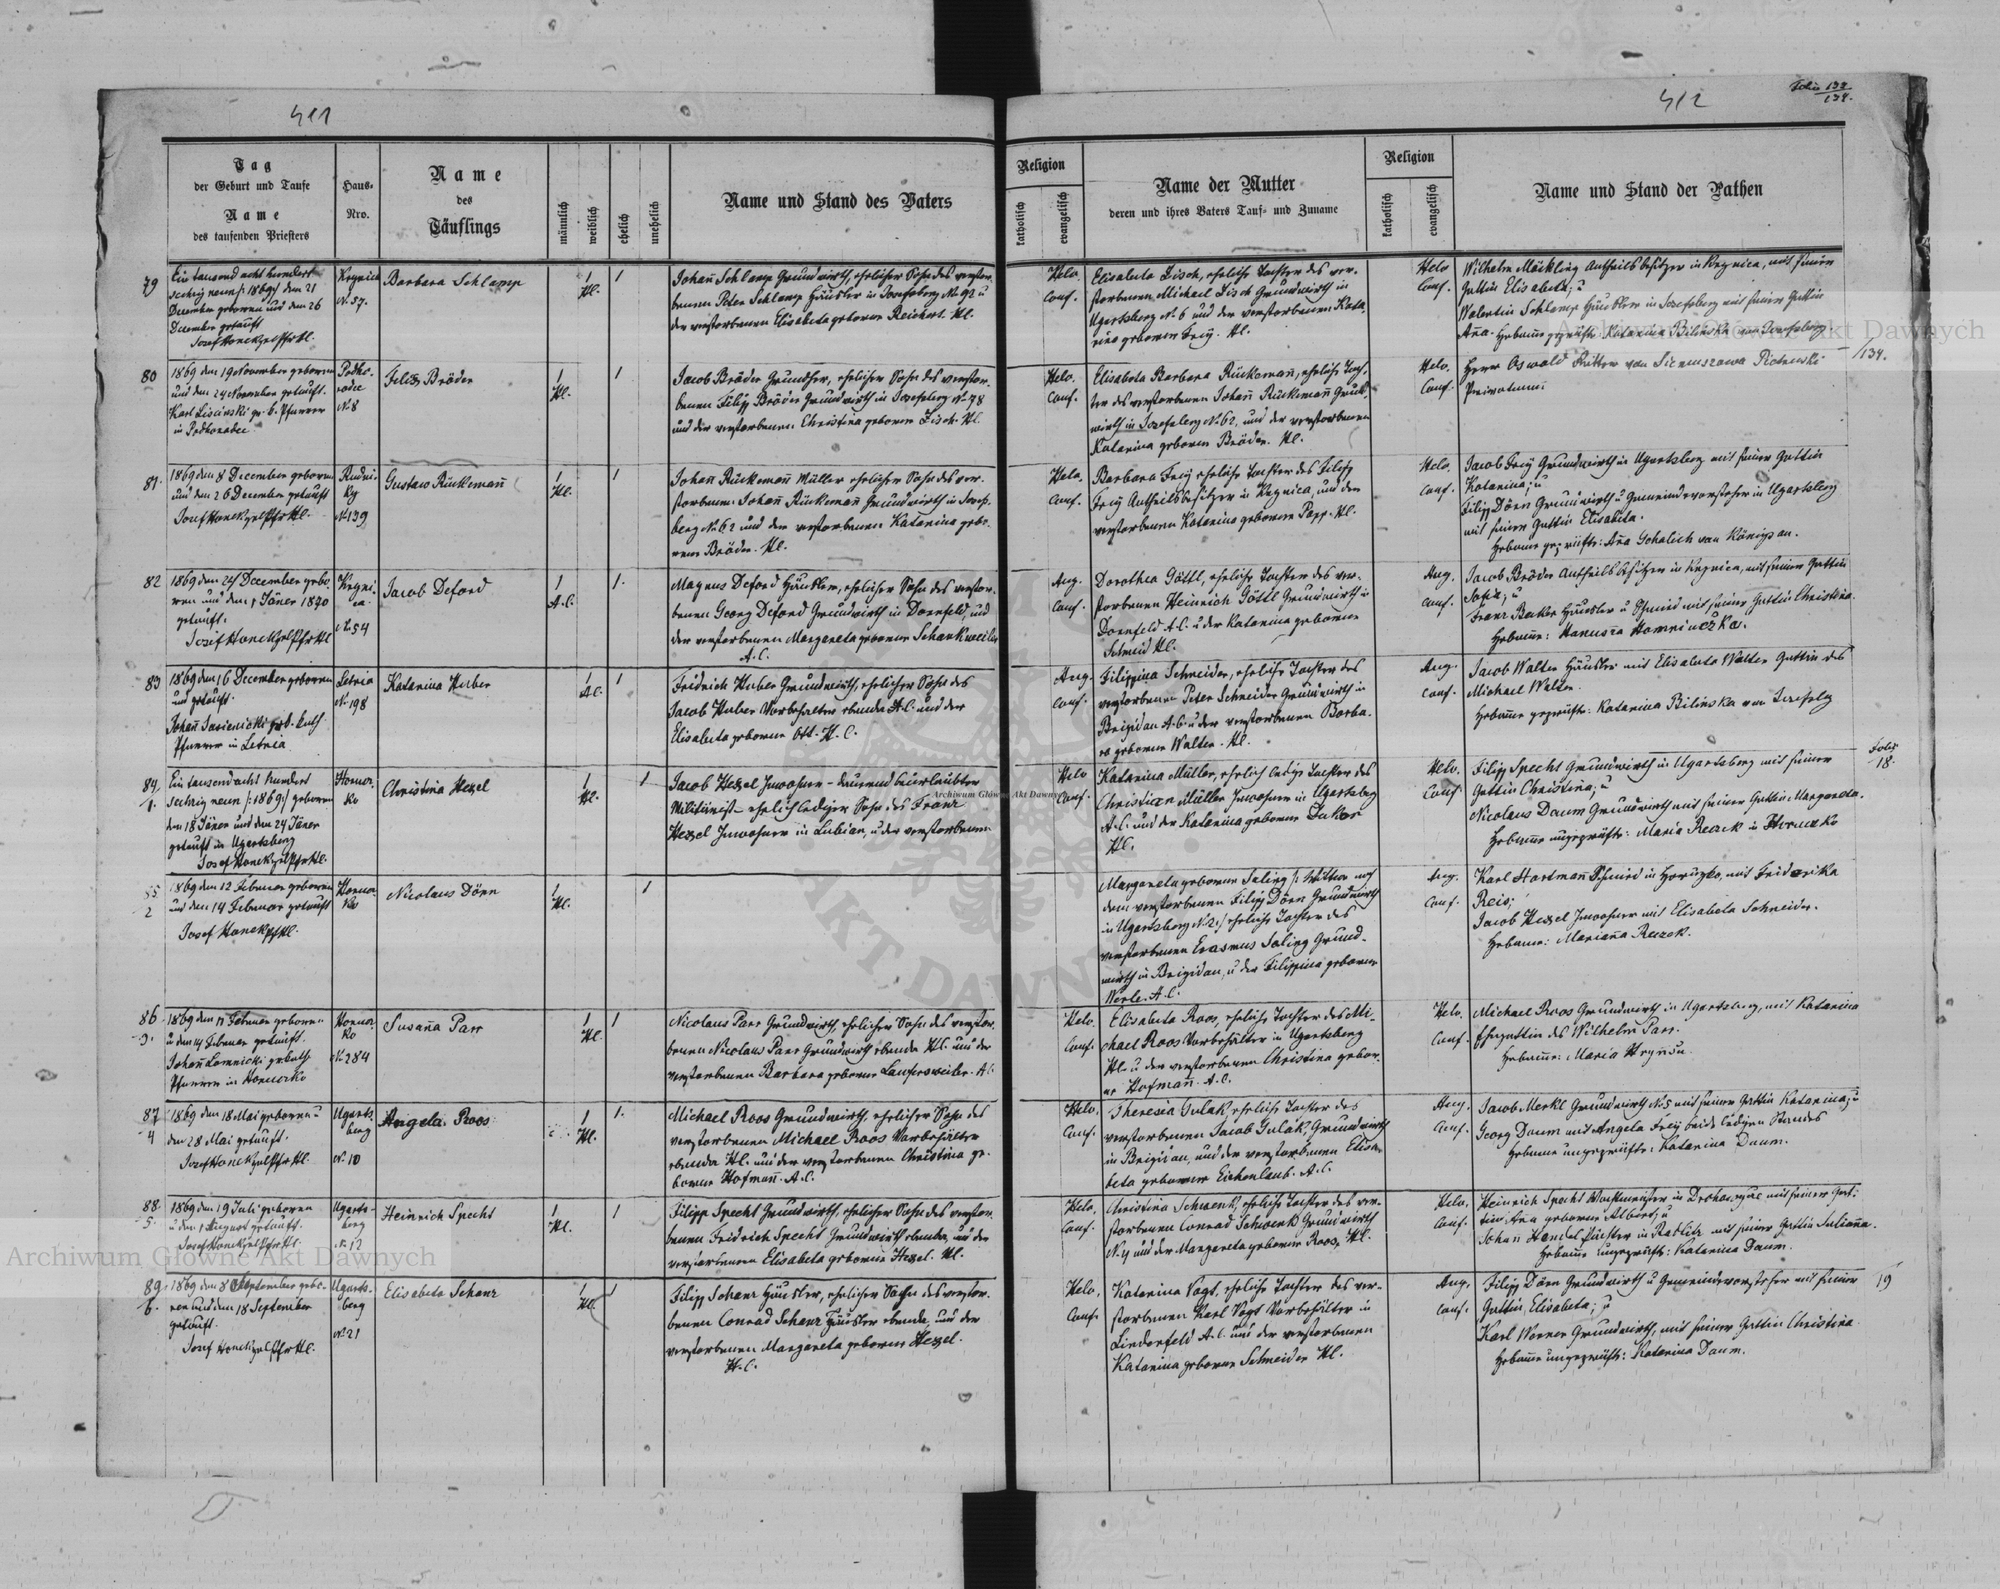 411
412
Folio 133
134.
Tag
der Geburt und Taufe
Name
des taufenden Priesters
Haus-
Nro.
Name
des
Täuflings
männlich
weiblich
ehelich
unehelich
Name und Stand des Vaters
Religion
katholisch
evangelisch
Name der Mutter
deren und ihres Vaters Tauf- und Zuname
Religion
katholisch
evangelisch
Name und Stand der Pathen
79
Ein tausend acht hundert
sechzig neun /: 1869:/ den 21
December geboren und den 26
December getauft
Josef Honckzel Pfr Hl.
Krynica
N. 57.
Barbara Schlamp
1
Hl.
1
Johañ Schlamp Grundwirth, ehelicher Sohn des verstor-
benen Peter Schlamp Häusler in Josefsberg N. 92 u
der verstorbenen Elisabeta geborene Reichert. Hl.
Helv.
Conf.
Elisabeta Lisch, eheliche Tochter des ver-
storbenen Michael Lisch Grundwirth in
Ugartsberg N. 6 und der verstorbenen Kata-
rina geborene Frey. Hl.
Helv
Conf.
Wilhelm Möckling Antheilsbesitzer in Krynica, mit seiner
Gattin Elisabeta; u
Valentin Schlamp Häusler in Josefsberg mit seiner Gattin
Aña. Hebame geprüfte Katarina Bilinska von Josefsberg
80
1869 den 19 November geboren
und den 24 November getauft.
Karl Liscinski gr. k. Pfarrer
in Podhorodce
Podho-
rodce
N. 8
Felix Bröder
1
Hl.
1
Jacob Bröder Grundher, ehelicher Sohn des verstor-
benen Filipp Bröder Grundwirth in Josefsberg N. 78
und der verstorbenen Christina geborene Lisch. Hl.
Helv.
Conf.
Elisabeta Barbara Rückemañ, eheliche Toch-
ter des verstorbenen Johañ Rückemañ Grund-
wirth in Josefsberg N. 62, und der verstorbenen
Katarina geborene Bröder. Hl.
Helv.
Conf.
Herr Oswald Ritter von Siemuszowa Pietruski
Privatier
134.
81.
1869 den 8 December geboren
und den 26 December getauft
Josef Honckzel Pfr Hl.
Rudni-
ky
N. 139
Gustaw Rückemañ
1
Hl.
1
Johañ Rückemañ Müller ehelicher Sohn des ver-
storbenen Johañ Rückemañ Grundwirth in Josefs-
berg N. 62 und der verstorbenen Katarina gebo-
rene Bröder. Hl.
Helv.
Conf.
Barbara Frey eheliche Tochter des Filipp
Frey Antheilsbesitzer in Krynica, und der
verstorbenen Katarina geborene Papp. Hl.
Helv.
Conf.
Jacob Frey Grundwirth in Ugartsberg mit seiner Gattin
Katarina; u
Filipp Dörn Grundwirth u Gemeindevorsteher in Ugartsberg
mit seiner Gattin Elisabeta.
Hebame geprüfte: Aña Schalich von Königsau.
82
1869 den 24 December gebo-
ren und den 1 Jäner 1870
getauft.
Josef Honckzel Pfr Hl
Kryni-
ca
N. 54
Jacob Deford
1
A.C.
1.
Magnus Deford Häusler, ehelicher Sohn des verstor-
benen Georg Deford Grundwirth in Dornfeld, und
der verstorbenen Margareta geborene Schankweiler
A.C.
Aug.
Conf.
Dorothea Göttl, eheliche Tochter des ver-
storbenen Heinrich Göttl Grundwirth in
Dornfeld A.C. u der Katarina geborene
Schmid Hl.
Aug.
Conf.
Jacob Bröder Antheilsbesitzer in Krynica, mit seiner Gattin
Sofia; u
Franz Becker Häusler u Schmid mit seiner Gattin Christina
83
1869 den 16 December geboren
und getauft.
Pfarrer in Letnia
Letnia
N. 198
Katarina Huber
1
A.C.
1
Fridrich Huber Grundwirth, ehelicher Sohn des
Jacob Huber Vorbehalter ebenda A.C. und der
Elisabeta geborene Ott. H.C.
Aug.
Conf.
Filippina Schneider, eheliche Tochter des
verstorbenen Peter Schneider Grundwirth in
Brigidau A.C. u der verstorbenen Barba-
ra geborene Walter. Hl.
Aug.
Conf.
Jacob Walter Häusler mit Elisabeta Walter Gattin des
Michael Walter.
Hebame geprüfte: Katarina Bilinska von Josefsbg
84
1.
Ein tausend acht hundert
sechzig neun /: 1869:/ geboren
den 18 Jäner und den 24 Jäner
getauft in Ugartsberg
Josef Honckzel Pfr Hl.
Horuc-
ko
Christina Hezel
1
Hl.
1
Jacob Hezel Inwohner - dauernd beurlaubter
Militärist - ehelich lediger Sohn des Franz
Hezel Inwohner in Lubian, u der verstorbenen
Helv
Conf.
Katarina Müller, ehelich ledige Tochter des
Christian Müller Inwohner in Ugartsbg
A.C. und der Katarina geborene
Hl.
Helv.
Conf
Filipp Specht Grundwirth in Ugartsberg mit seiner
Gattin Christina; u
Nicolaus Daum Grundwirth mit seiner Gattin Margareta.
Hebame ungeprüfte: Maria Reczek in Horucko
Folio
18.
85
2
1869 den 12 Februar geboren
und den 14 Februar getauft
Josef Honck Pf Hl.
Horuc-
ko
Nicolaus Dörn
1
Hl.
1
Margareta geborene Saling /: Wittwe nach
dem verstorbenen Filipp Dörn Grundwirth
in Ugartsberg N. 2:/ eheliche Tochter des
verstorbenen Erasmus Saling Grund-
wirth in Brigidau, u der Filippina geborene
Werle. A.C.
Aug.
Conf.
Karl Hartmañ Schmied in Horucko, mit Friderika
Reis;
Jacob Hezel Inwohner mit Elisabeta Schneider.
Hebame: Mariaña Reczek.
86
3.
1869 den 11 Februar geboren
u den 14 Februar getauft.
Pfarrer in Horucko
Horuc-
ko
N. 284
Susaña Parr
1
Hl.
1
Nicolaus Parr Grundwirth, ehelicher Sohn des verstor-
benen Nicolaus Parr Grundwirth ebenda Hl. und der
verstorbenen Barbara geborene Laufersweiler. A.C.
Helv.
Conf.
Elisabeta Roos, eheliche Tochter des Mi-
chael Roos Vorbehälter in Ugartsberg
Hl. u der verstorbenen Christina gebor-
ne Hofmañ. A.C.
Helv.
Conf.
Michael Roos Grundwirth in Ugartsberg, mit Katarina
Ehegattin des Wilhelm Parr.
87
4
1869 den 18 Mai geboren u
den 28 Mai getauft.
Josef Honckzel Pfr Hl.
Ugarts-
berg
N. 10
Angela Roos
1
Hl.
1.
Michael Roos Grundwirth, ehelicher Sohn des
verstorbenen Michael Roos Vorbehälter
ebenda Hl. und der verstorbenen Christina ge-
borene Hofmañ. A.C.
Helv.
Conf.
Theresia Gulak, eheliche Tochter des
verstorbenen Jacob Gulak, Grundwirth
in Brigidau, und der verstorbenen Elisa-
beta geborene Eichenlaub. A.C.
Aug.
Conf.
Jacob Merkl Grundwirth N. 5 mit seiner Gattin Katarina; u
Georg Daum mit Angela Frey beide ledigen Standes
Hebame ungeprüfte: Katarina Daum.
88.
5.
1869 den 19 Juli geboren
u den 1 August getauft.
Josef Honckzel Pfr Hl.
Ugarts-
berg
N. 12
Heinrich Specht
1
Hl.
1
Filipp Specht Grundwirth, ehelicher Sohn des verstor-
benen Fridrich Specht Grundwirth ebenda, und der
verstorbenen Elisabeta geborene Hezel. Hl.
Helv.
Conf.
Christina Schwenk, eheliche Tochter des ver-
storbenen Conrad Schwenk Grundwirth
N. 4 und der Margareta geborene Roos, Hl.
Helv.
Conf.
Heinrich Specht Wachtmeister in Drohobycz mit seiner Gat-
tin Aña geborene Albert; u
Hebame ungeprüfte: Katarina Daum.
89
6.
1869 den 8 September gebo-
ren und den 18 September
getauft.
Josef Honckzel Pfr Hl.
Ugarts-
berg
N. 21
Elisabeta Schanz
1
Hl.
1
Filipp Schanz Häusler, ehelicher Sohn des verstor-
benen Conrad Schanz Häusler ebenda, und der
verstorbenen Margareta geborene Hezel.
H.C.
Helv.
Conf.
Katarina Vogt, eheliche Tochter des ver-
storbenen Karl Vogt Vorbehälter in
Lindenfeld A.C. und der verstorbenen
Katarina geborene Schneider Hl.
Aug.
Conf.
Filipp Dörn Grundwirth u Gemeindevorsteher mit seiner
Gattin Elisabeta; u
Karl Werner Grundwirth, mit seiner Gattin Christina
Hebame ungeprüfte: Katarina Daum.
19
Archiwum Główne Akt Dawnych
Archiwum Główne Akt Dawnych
Archiwum Główne Akt Dawnych
AKT DAWNYCH